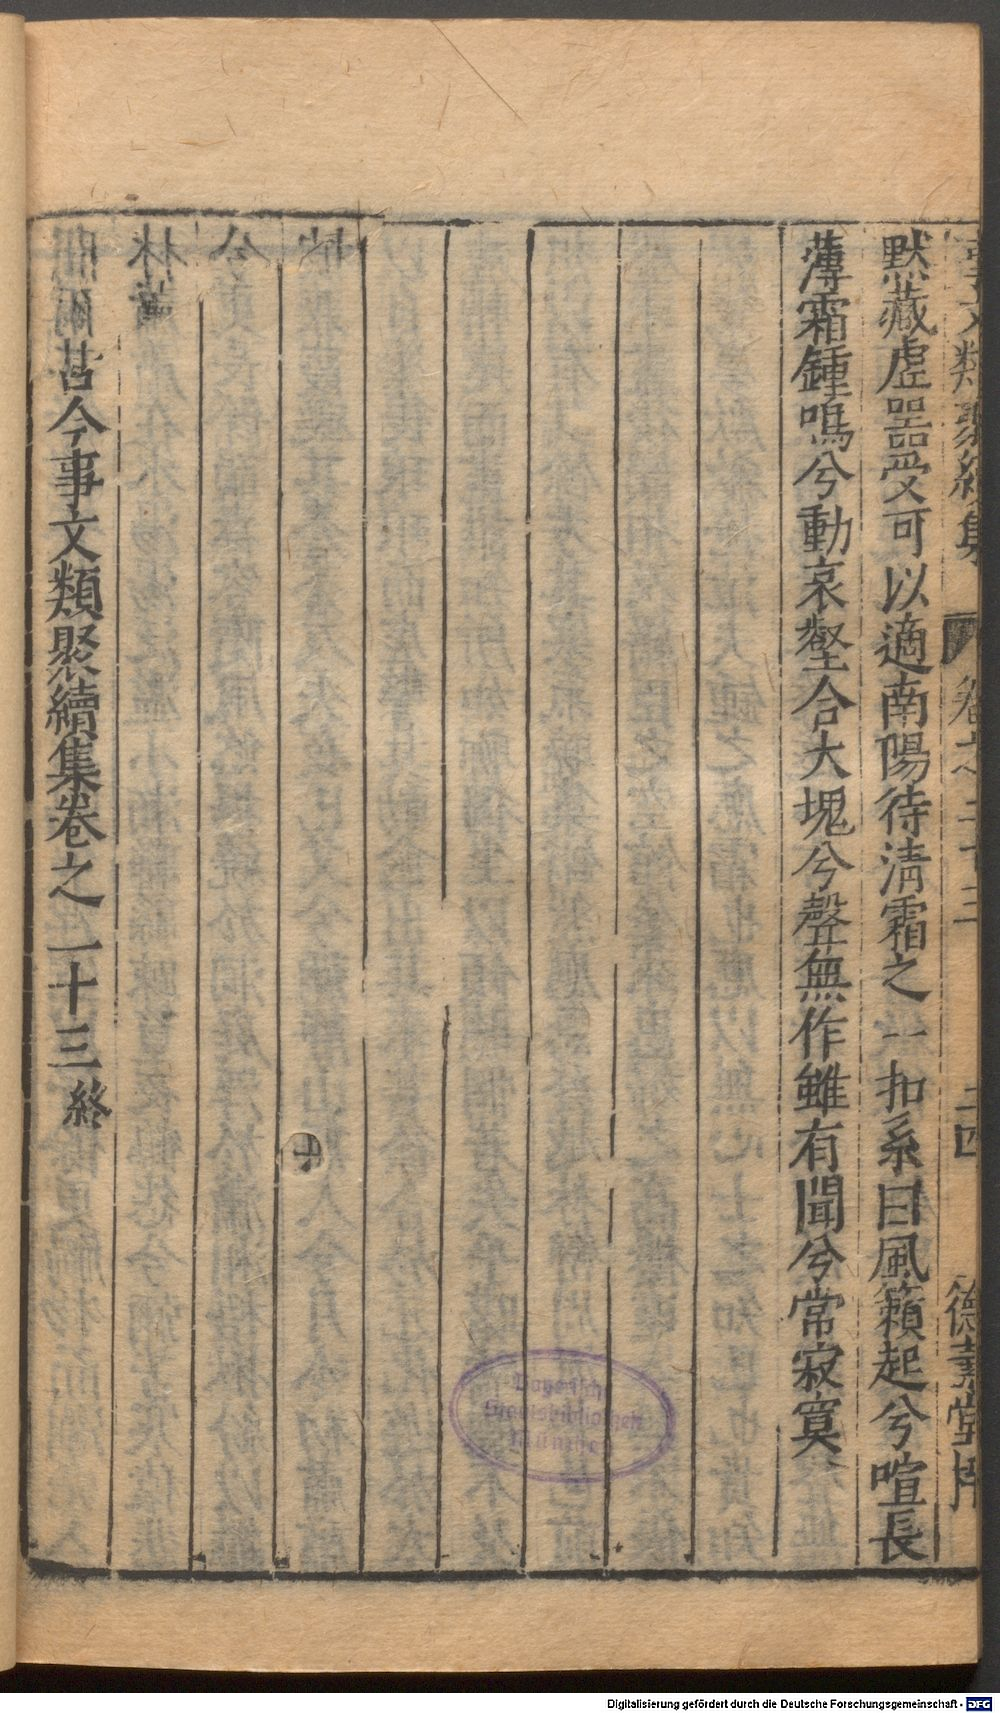 默藏虛器受可以適南陽待淸霜之一扣系曰風籟起兮喧長
薄霜鍾鳴兮動哀壑合大塊兮聲無作雖有聞兮常寂寞
古今事文類聚續集卷之二十三終
文類聚續集 卷之二十三 二四 德壽堂梓
Bayerische
Staatsbibliothek
München
Digitalisierung gefördert durch die Deutsche Forschungsgemeinschaft - DFG